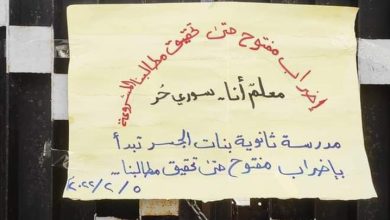 إضراب مفتوح حتى تحقيق مطالبنا المشروعة
معلم أنا.. سوري حُر
مدرسة ثانوية بنات الجسر تبدأ
بإضراب مفتوح حتى تحقيق مطالبنا..
٢٠٢٢/٢/٥